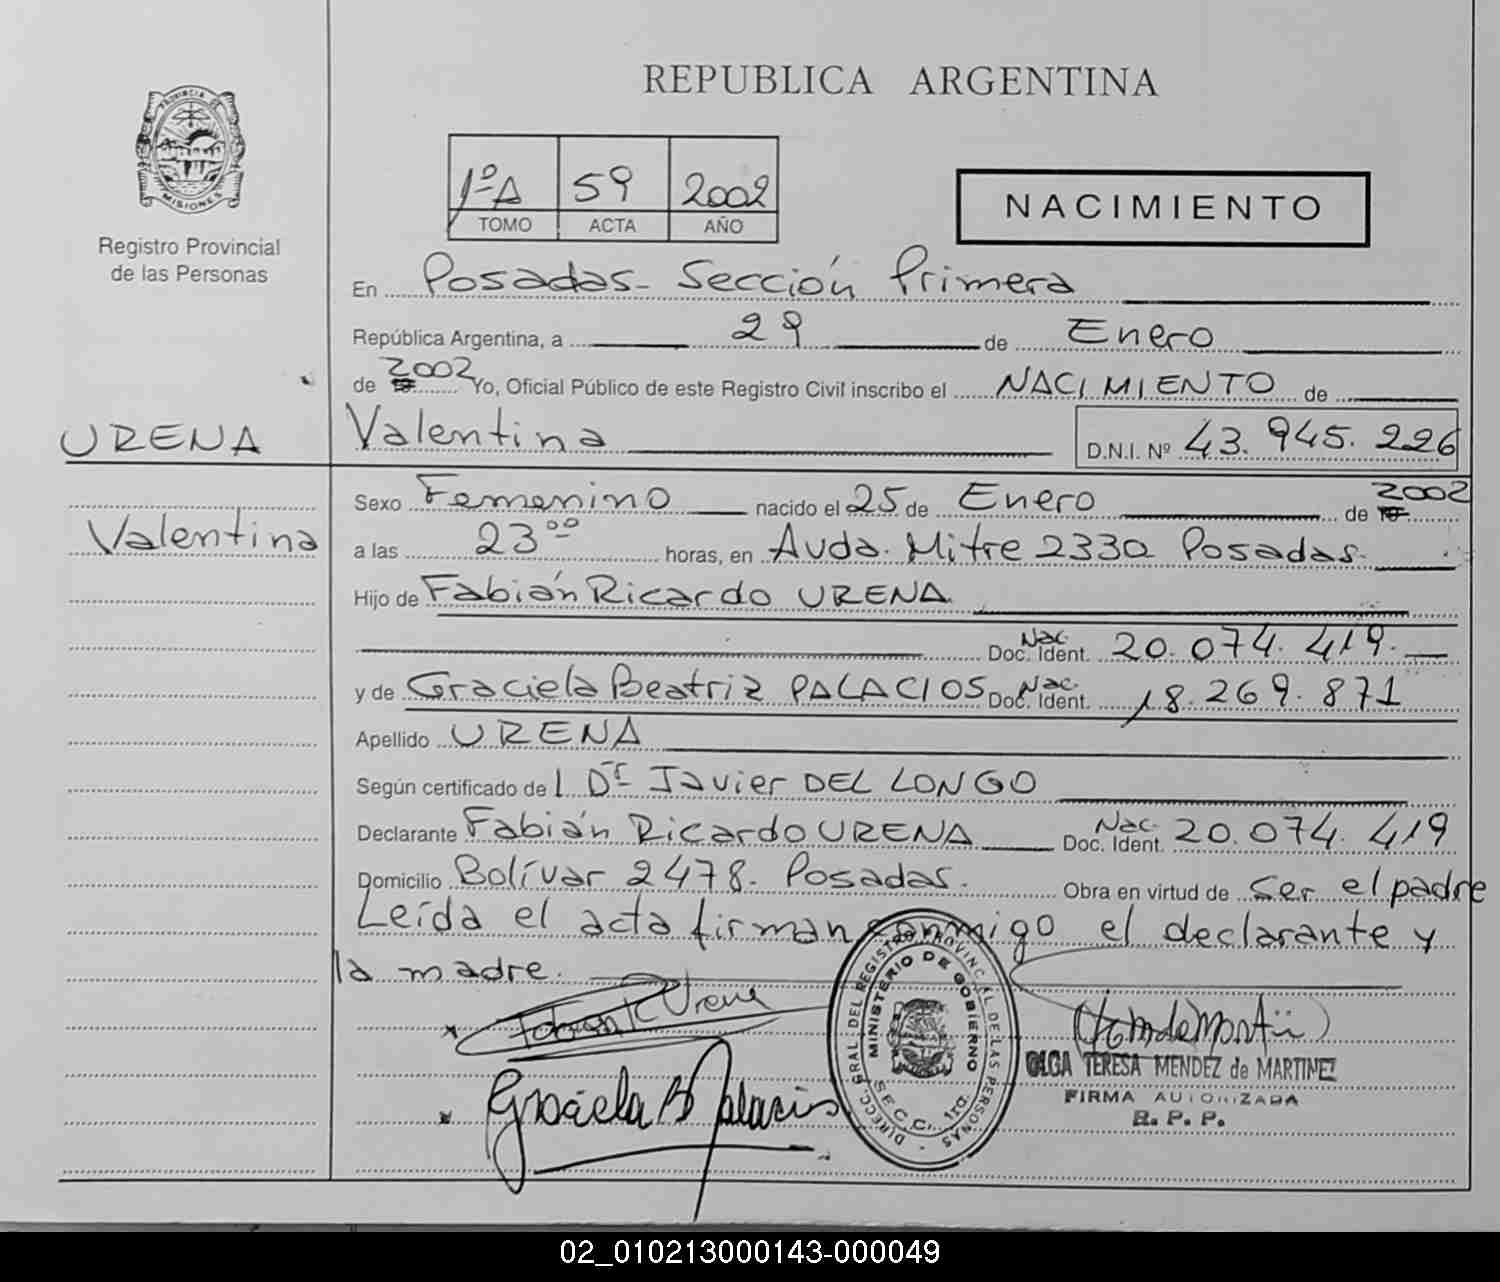 REPUBLICA ARGENTINA
PROVINCIA DE
MISIONES
Registro Provincial
de las Personas
1º A 59 2002
TOMO ACTA AÑO
NACIMIENTO
En Posadas - Sección Primera
República Argentina, a 29 de Enero
de 2002 Yo, Oficial Público de este Registro Civil inscribo el NACIMIENTO de
URENA Valentina D.N.I. Nº 43.945.226
Sexo Femenino nacido el 25 de Enero de 2002
Valentina a las 23ºº horas, en Avda. Mitre 2330 Posadas.
Hijo de Fabián Ricardo URENA
Doc. Nac. Ident. 20.074.419.
y de Graciela Beatriz PALACIOS Doc. Nac. Ident. 18.269.871
Apellido URENA
Según certificado de l Dr Javier DEL LONGO
Declarante Fabián Ricardo URENA Doc. Nac. Ident. 20.074.419
Domicilio Bolívar 2478. Posadas. Obra en virtud de Ser el padre
Leída el acta firman conmigo el declarante y
la madre.
Fabian R Urena
Graciela B Palacios
DIRECC. GRAL DEL REGISTRO PROVINCIAL DE LAS PERSONAS
MINISTERIO DE GOBIERNO
SECC. 1ra.
OLGA TERESA MENDEZ de MARTINEZ
FIRMA AUTORIZADA
R. P. P.
02_010213000143-000049